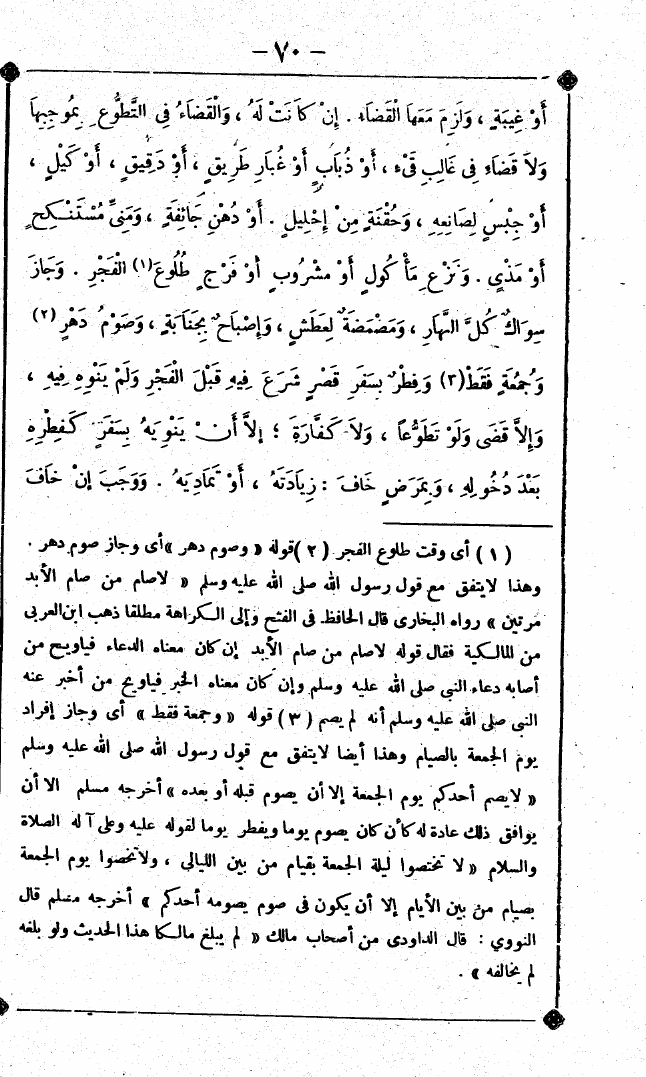 — ٧٠ —
أَوْ غِيبَةٍ ، وَلَزِمَ مَعَهَا الْقَضَاءُ . إِنْ كَانَتْ لَهُ ، وَالْقَضَاءُ فِى التَّطَوُّعِ بِمُوجِبِهَا
وَلاَ قَضَاءَ فِى غَالِبِ قَىْءٍ ، أَوْ ذُبَابٍ أَوْ غُبَارِ طَرِيقٍ ، أَوْ دَقِيقٍ ، أَوْ كَيْلٍ ،
أَوْ جِبْسٍ لِصَانِعِهِ ، وَحُقْنَةٍ مِنْ إِحْلِيلٍ . أَوْ دُهْنِ جَائِفَةٍ ، وَمَنِىٍّ مُسْتَنْكِحٍ
أَوْ مَذْىٍ . وَنَزْعِ مَأْكُولٍ أَوْ مَشْرُوبٍ أَوْ فَرْجٍ طُلُوعَ (١) الْفَجْرِ . وَجَازَ
سِوَاكٌ كُلَّ النَّهَارِ ، وَمَضْمَضَةٌ لِعَطَشٍ ، وَإِصْبَاحٌ بِجَنَابَةٍ ، وَصَوْمُ دَهْرٍ (٢)
وَجُمُعَةٍ فَقَطْ (٣) وَفِطْرٌ بِسَفَرِ قَصْرٍ شَرَعَ فِيهِ قَبْلَ الْفَجْرِ وَلَمْ يَنْوِهِ فِيهِ ،
وَإِلاَّ قَضَى وَلَوْ تَطَوُّعاً ، وَلاَ كَفَّارَةَ ؛ إِلاَّ أَنْ يَنْوِيَهُ بِسَفَرٍ كَفِطْرِهِ
بَعْدَ دُخُولِهِ ، وَبِمَرَضٍ خَافَ : زِيَادَتَهُ ، أَوْ تَمَادِيَهُ . وَوَجَبَ إِنْ خَافَ
(١) أى وقت طلوع الفجر (٢) قوله « وصوم دهر » أى وجاز صوم دهر .
وهذا لايتفق مع قول رسول الله صلى الله عليه وسلم « لاصام من صام الأبد
مرتين » رواه البخارى قال الحافظ فى الفتح وإلى الكراهة مطلقا ذهب ابن العربى
من المالكية فقال قوله لاصام من صام الأبد إن كان معناه الدعاء فياويح من
أصابه دعاء النبى صلى الله عليه وسلم وإن كان معناه الخبر فياويح من أخبر عنه
النبى صلى الله عليه وسلم أنه لم يصم (٣) قوله « وجمعة فقط » أى وجاز إفراد
يوم الجمعة بالصيام وهذا أيضا لايتفق مع قول رسول الله صلى الله عليه وسلم
« لايصم أحدكم يوم الجمعة إلا أن يصوم قبله أو بعده » أخرجه مسلم الا أن
يوافق ذلك عادة له كأن كان يصوم يوما ويفطر يوما لقوله عليه وعلى آله الصلاة
والسلام « لا تختصوا ليلة الجمعة بقيام من بين الليالى ، ولاتخصوا يوم الجمعة
بصيام من بين الأيام إلا أن يكون فى صوم يصومه أحدكم » أخرجه مسلم قال
النووي : قال الداودى من أصحاب مالك « لم يبلغ مالكا هذا الحديث ولو بلغه
لم يخالفه » .